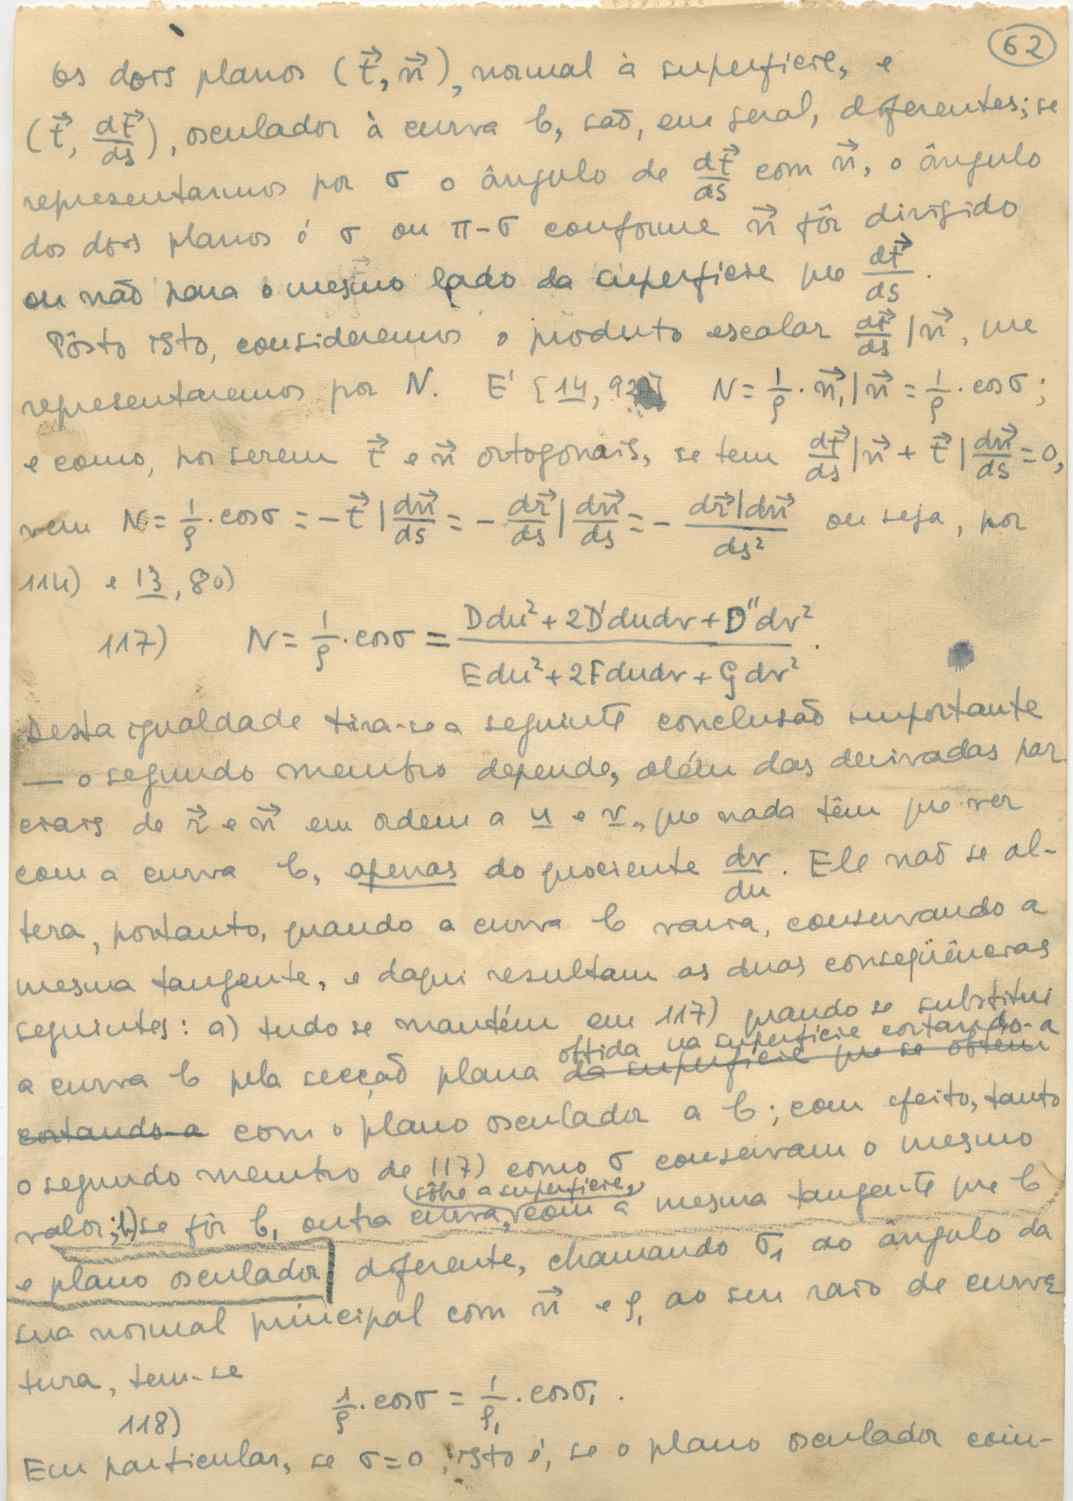 62
Os dois planos (t⃗, n⃗), normal à superfície, e
(t⃗, dt⃗/ds), osculador à curva C, são, em geral, diferentes; se
representarmos por σ o ângulo de dt⃗/ds com n⃗, o ângulo
dos dois planos é σ ou π-σ conforme n⃗ fôr dirigido
ou não para o mesmo lado da superfície que dt⃗/ds.
Pôsto isto, consideremos o produto escalar dt⃗/ds | n⃗, que
representaremos por N. E' [14, N = 1/ρ · n⃗₁ | n⃗ = 1/ρ · cos σ;
e como, por serem t⃗ e n⃗ ortogonais, se tem dt⃗/ds | n⃗ + t⃗ | dn⃗/ds = 0,
vem N = 1/ρ · cos σ = - t⃗ | dn⃗/ds = - dr⃗/ds | dn⃗/ds = - dr⃗|dn⃗/ds² ou seja, por
114) e 13, 80)
117) N = 1/ρ · cos σ = Ddu² + 2D'dudv + D''dv² / Edu² + 2Fdudv + Gdv² .
Desta igualdade tira-se a seguinte conclusão importante
— o segundo membro depende, além das derivadas par
ciais de r⃗ e n⃗ em ordem a u e v, que nada têm que ver
com a curva C, apenas do quociente dv/du. Ele não se al-
tera, portanto, quando a curva C varia, conservando a
mesma tangente, e daqui resultam as duas conseqüências
seguintes: a) tudo se mantém em 117) quando se substitui
obtida na superfície cortando-a
a curva C pela secção plana da superfície que se obtem
cortando-a com o plano osculador a C; com efeito, tanto
o segundo membro de 117) como σ conservam o mesmo
(sôbre a superfície,)
valor; b) se fôr C₁ outra curva, com a mesma tangente que C
e plano osculador diferente, chamando σ₁ ao ângulo da
sua normal principal com n⃗ e ρ₁ ao seu raio de curva
tura, tem-se
118) 1/ρ · cos σ = 1/ρ₁ · cos σ₁ .
Em particular, se σ=0, isto é, se o plano osculador coin-